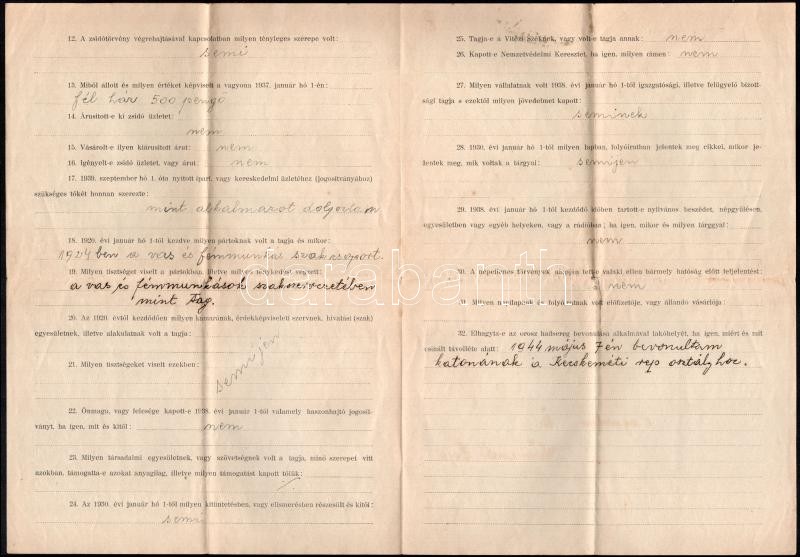 12. A zsidótörvény végrehajtásával kapcsolatban milyen tényleges szerepe volt:
semi
13. Miből állott és milyen értéket képviselt a vagyona 1937. január hó 1-én:
fél ház 500 pengő
14. Árusított-e ki zsidó üzletet:
nem
15. Vásárolt-e ilyen kiárusított árut: nem
16. Igényelt-e zsidó üzletet, vagy árut: nem
17. 1939. szeptember hó 1. óta nyitott ipart, vagy kereskedelmi üzletéhez (jogosítványához)
szükséges tőkét honnan szerezte:
mint alkalmazot dolgoztam
18. 1920. évi január hó 1-től kezdve milyen pártoknak volt a tagja és mikor:
1924 ben a vas és fémmunkás szakcsoport.
19. Milyen tisztséget viselt a pártokban, illetve milyen ténykedést végzett:
a vas és fémmunkások szakszervezetében
mint Tag.
20. Az 1920. évtől kezdődően milyen kamarának, érdekképviseleti szervnek, hivatási (szak)
egyesületnek, illetve alakulatnak volt a tagja:
21. Milyen tisztségeket viselt ezekben:
semijen
22. Önmaga, vagy felesége kapott-e 1938. évi január 1-től valamely haszonhajtó jogosít-
ványt, ha igen, mit és kitől: nem
23. Milyen társadalmi egyesületnek, vagy szövetségnek volt a tagja, minő szerepet vitt
azokban, támogatta-e azokat anyagilag, illetve milyen támogatást kapott tőlük:
24. Az 1930. évi január hó 1-től milyen kitüntetésben, vagy elismerésben részesült és kitől:
semi
25. Tagja-e a Vitézi Széknek, vagy volt-e tagja annak: nem
26. Kapott-e Nemzetvédelmi Keresztet, ha igen, milyen címen: nem
27. Milyen vállalatnak volt 1938. évi január hó 1-től igazgatósági, illetve felügyelő bizott-
sági tagja s ezektől milyen jövedelmet kapott:
seminek
28. 1930. évi január hó 1-től milyen lapban, folyóiratban jelentek meg cikkei, mikor je-
lentek meg, mik voltak a tárgyai: semijen
29. 1938. évi január hó 1-től kezdődő időben tartott-e nyilvános beszédet, népgyűlésen,
egyesületben vagy egyéb helyeken, vagy a rádióban; ha igen, mikor és milyen tárggyal:
nem
30. A népellenes törvények alapján tett-e valaki ellen bármely hatóság előtt feljelentést:
nem
31. Milyen napilapnak és folyóiratnak volt előfizetője, vagy állandó vásárlója:
32. Elhagyta-e az orosz hadsereg bevonulása alkalmával lakóhelyét, ha igen, miért és mit
csinált távolléte alatt: 1944 május 7én bevonultam
katonának a Kecskeméti rep osztályhoz.
darabanth